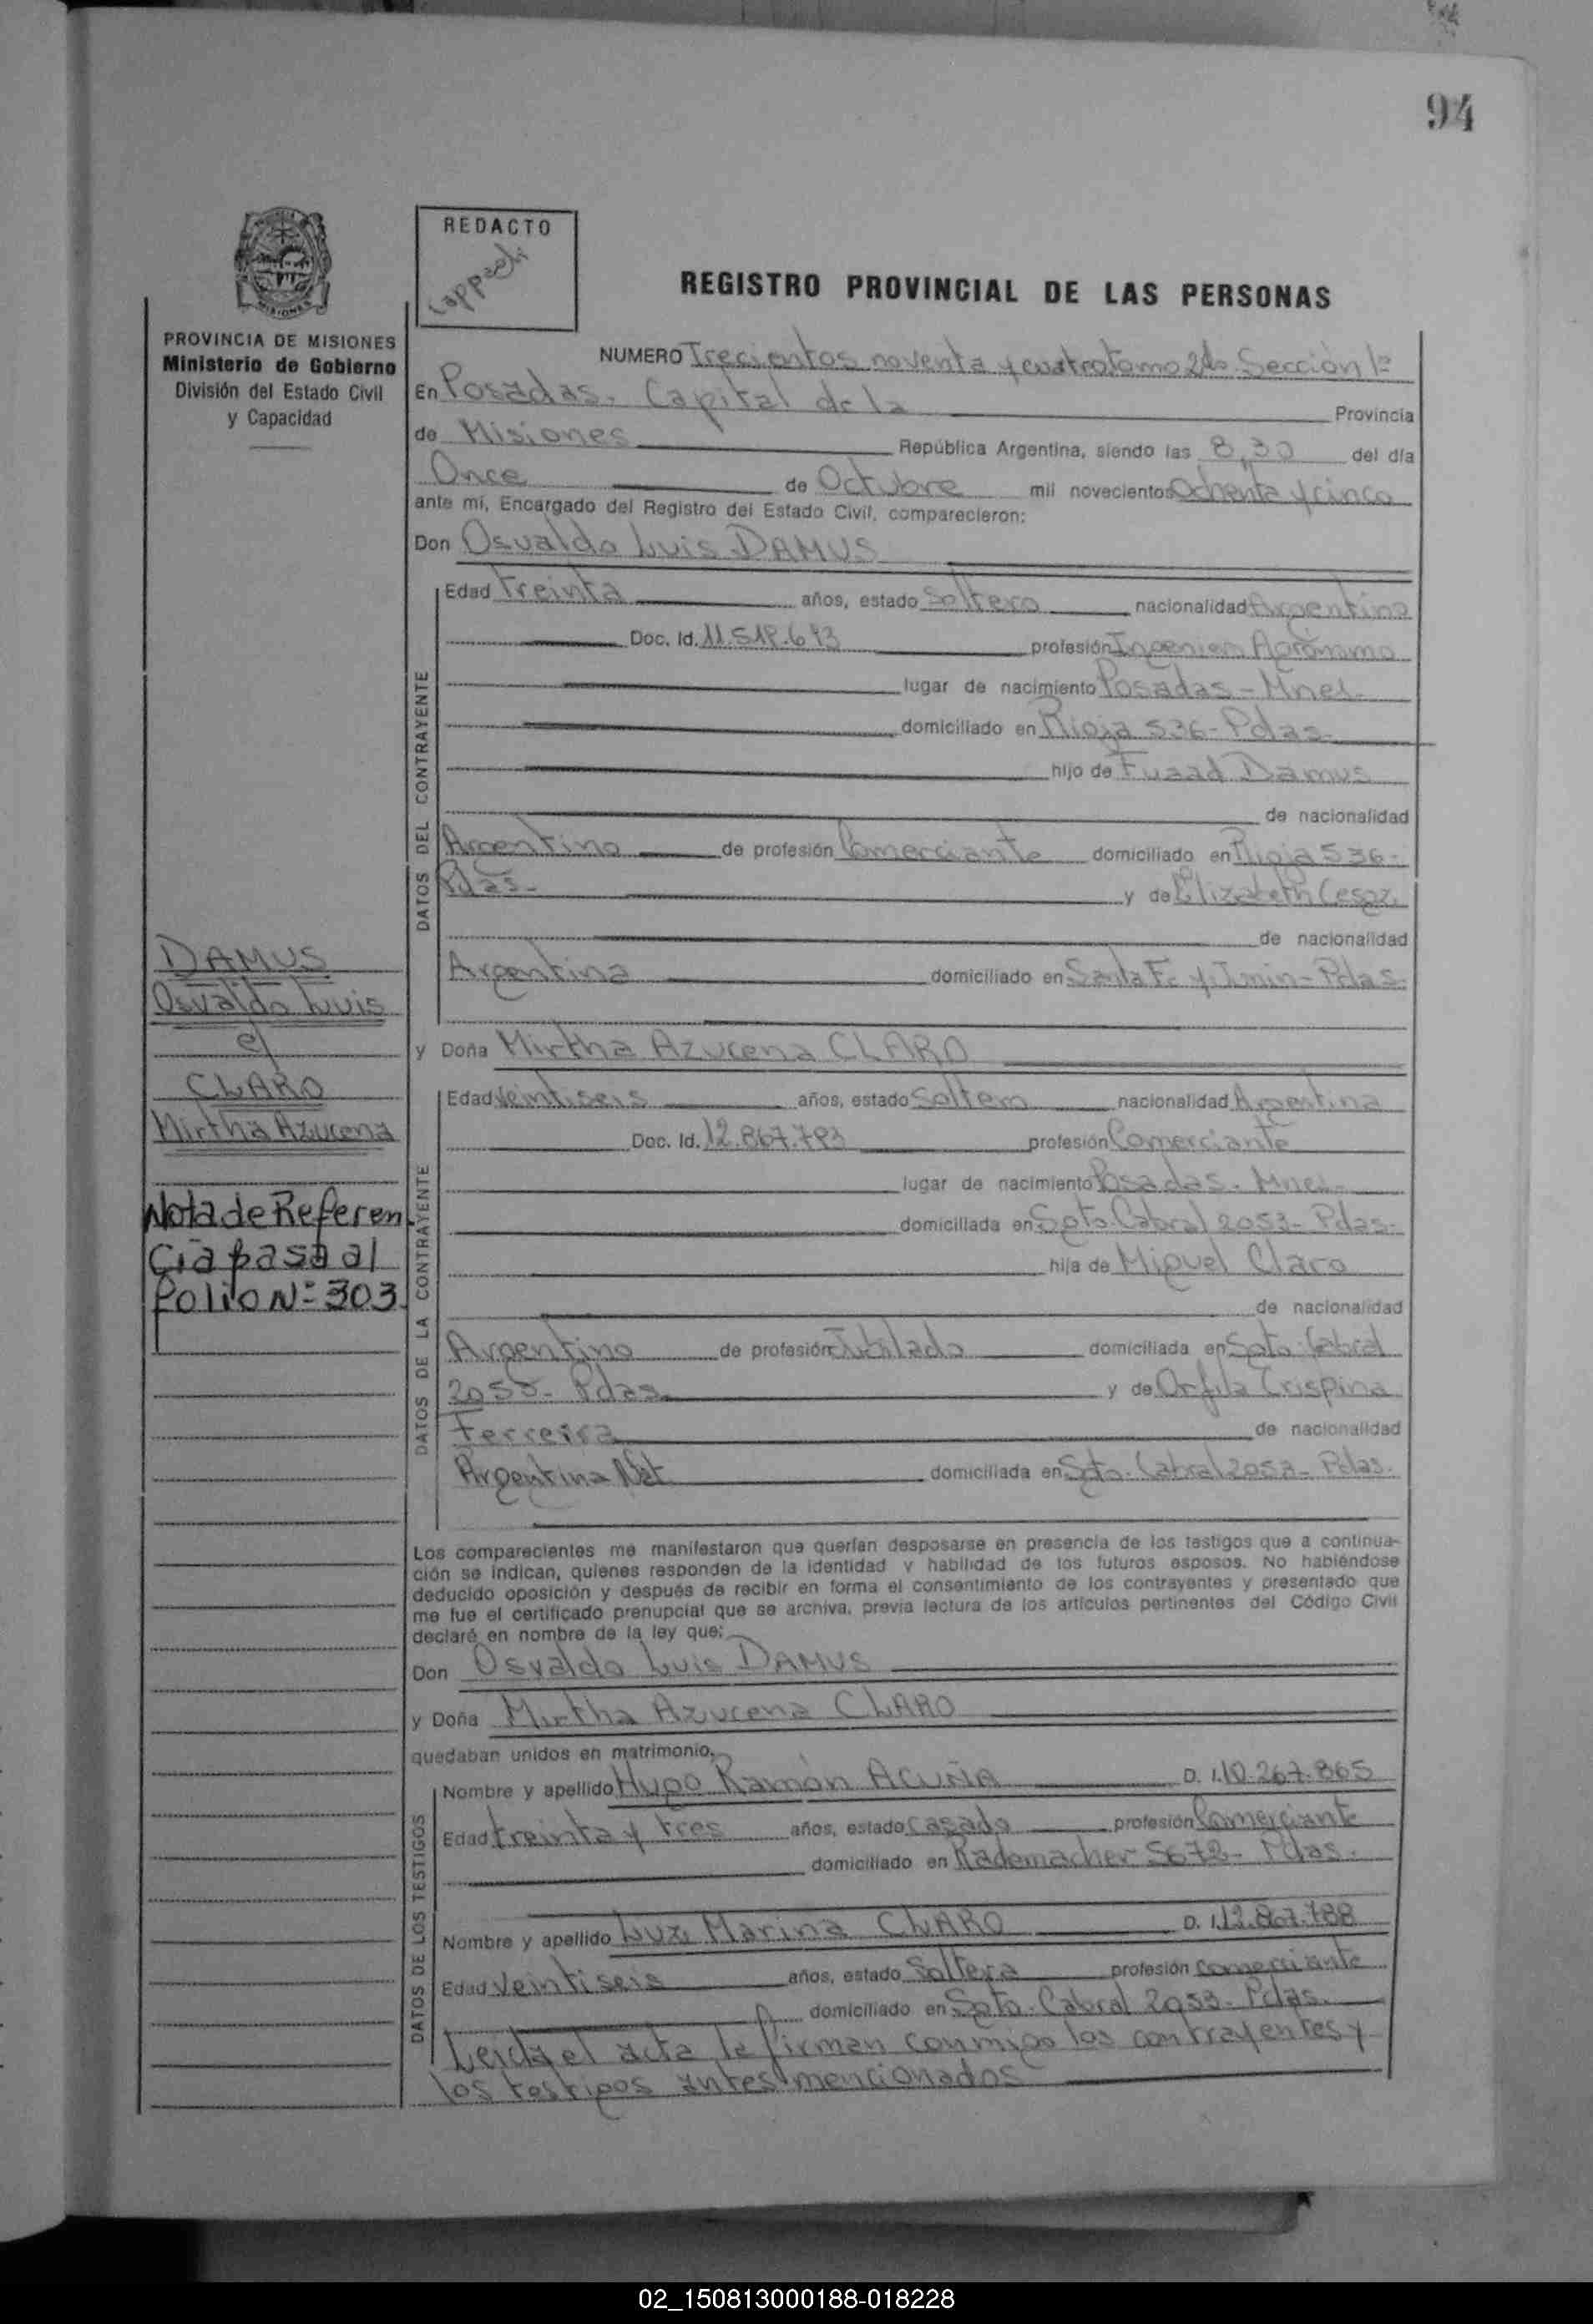 94
REDACTO
REGISTRO PROVINCIAL DE LAS PERSONAS
MISIONES
PROVINCIA DE MISIONES
Ministerio de Gobierno
División del Estado Civil
y Capacidad
NUMERO Trecientos noventa y cuatro tomo 2do Sección 1a
En Posadas. Capital de la Provincia
de Misiones República Argentina, siendo las 8,30 del día
Once de Octubre mil novecientos Ochenta y cinco
ante mí, Encargado del Registro del Estado Civil, comparecieron:
Don Osvaldo Luis DAMUS
DATOS DEL CONTRAYENTE
Edad treinta años, estado Soltero nacionalidad Argentino
Doc. Id. profesión Ingeniero Agrónomo
lugar de nacimiento Posadas - Mnes.
domiciliado en Rioja 536 - Pdas.
hijo de Fuaad Damus
de nacionalidad
Argentino de profesión Comerciante domiciliado en Rioja 536-
Pdas. y de Elizabeth
de nacionalidad
Argentina domiciliado en Santa Fe y Junin - Pdas.
y Doña Mirtha Azucena CLARO
DAMUS
Osvaldo Luis
c/
CLARO
Mirtha Azucena
Nota de Referen
cia pasa al
Folio N° 303.
DATOS DE LA CONTRAYENTE
Edad Veintiseis años, estado Soltera nacionalidad Argentina
Doc. Id. 12.867.793 profesión Comerciante
lugar de nacimiento Posadas. Mnes.
domiciliada en Sgto. Cabral 2053 - Pdas.
hija de Miguel Claro
de nacionalidad
Argentino de profesión Jubilado domiciliada en Sgto. Cabral
2053 - Pdas. y de Orfila Crispina
Ferreira de nacionalidad
Argentina Nat. domiciliada en Sgto. Cabral 2053 - Pdas.
Los comparecientes me manifestaron que querían desposarse en presencia de los testigos que a continua-
ción se indican, quienes responden de la identidad y habilidad de los futuros esposos. No habiéndose
deducido oposición y después de recibir en forma el consentimiento de los contrayentes y presentado que
me fue el certificado prenupcial que se archiva, previa lectura de los artículos pertinentes del Código Civil
declaré en nombre de la ley que:
Don Osvaldo Luis DAMUS
y Doña Mirtha Azucena CLARO
quedaban unidos en matrimonio.
DATOS DE LOS TESTIGOS
Nombre y apellido Hugo Ramón ACUÑA D. I. 10.267.865
Edad treinta y tres años, estado casado profesión Comerciante
domiciliado en Rademacher 5672 - Pdas.
Nombre y apellido Luz Marina CLARO D. I. 12.867.788
Edad Veintiseis años, estado Soltera profesión comerciante
domiciliado en Sgto. Cabral 2053 - Pdas.
Leida el acta la firman conmigo los contrayentes y
los testigos antes mencionados
02_150813000188-018228